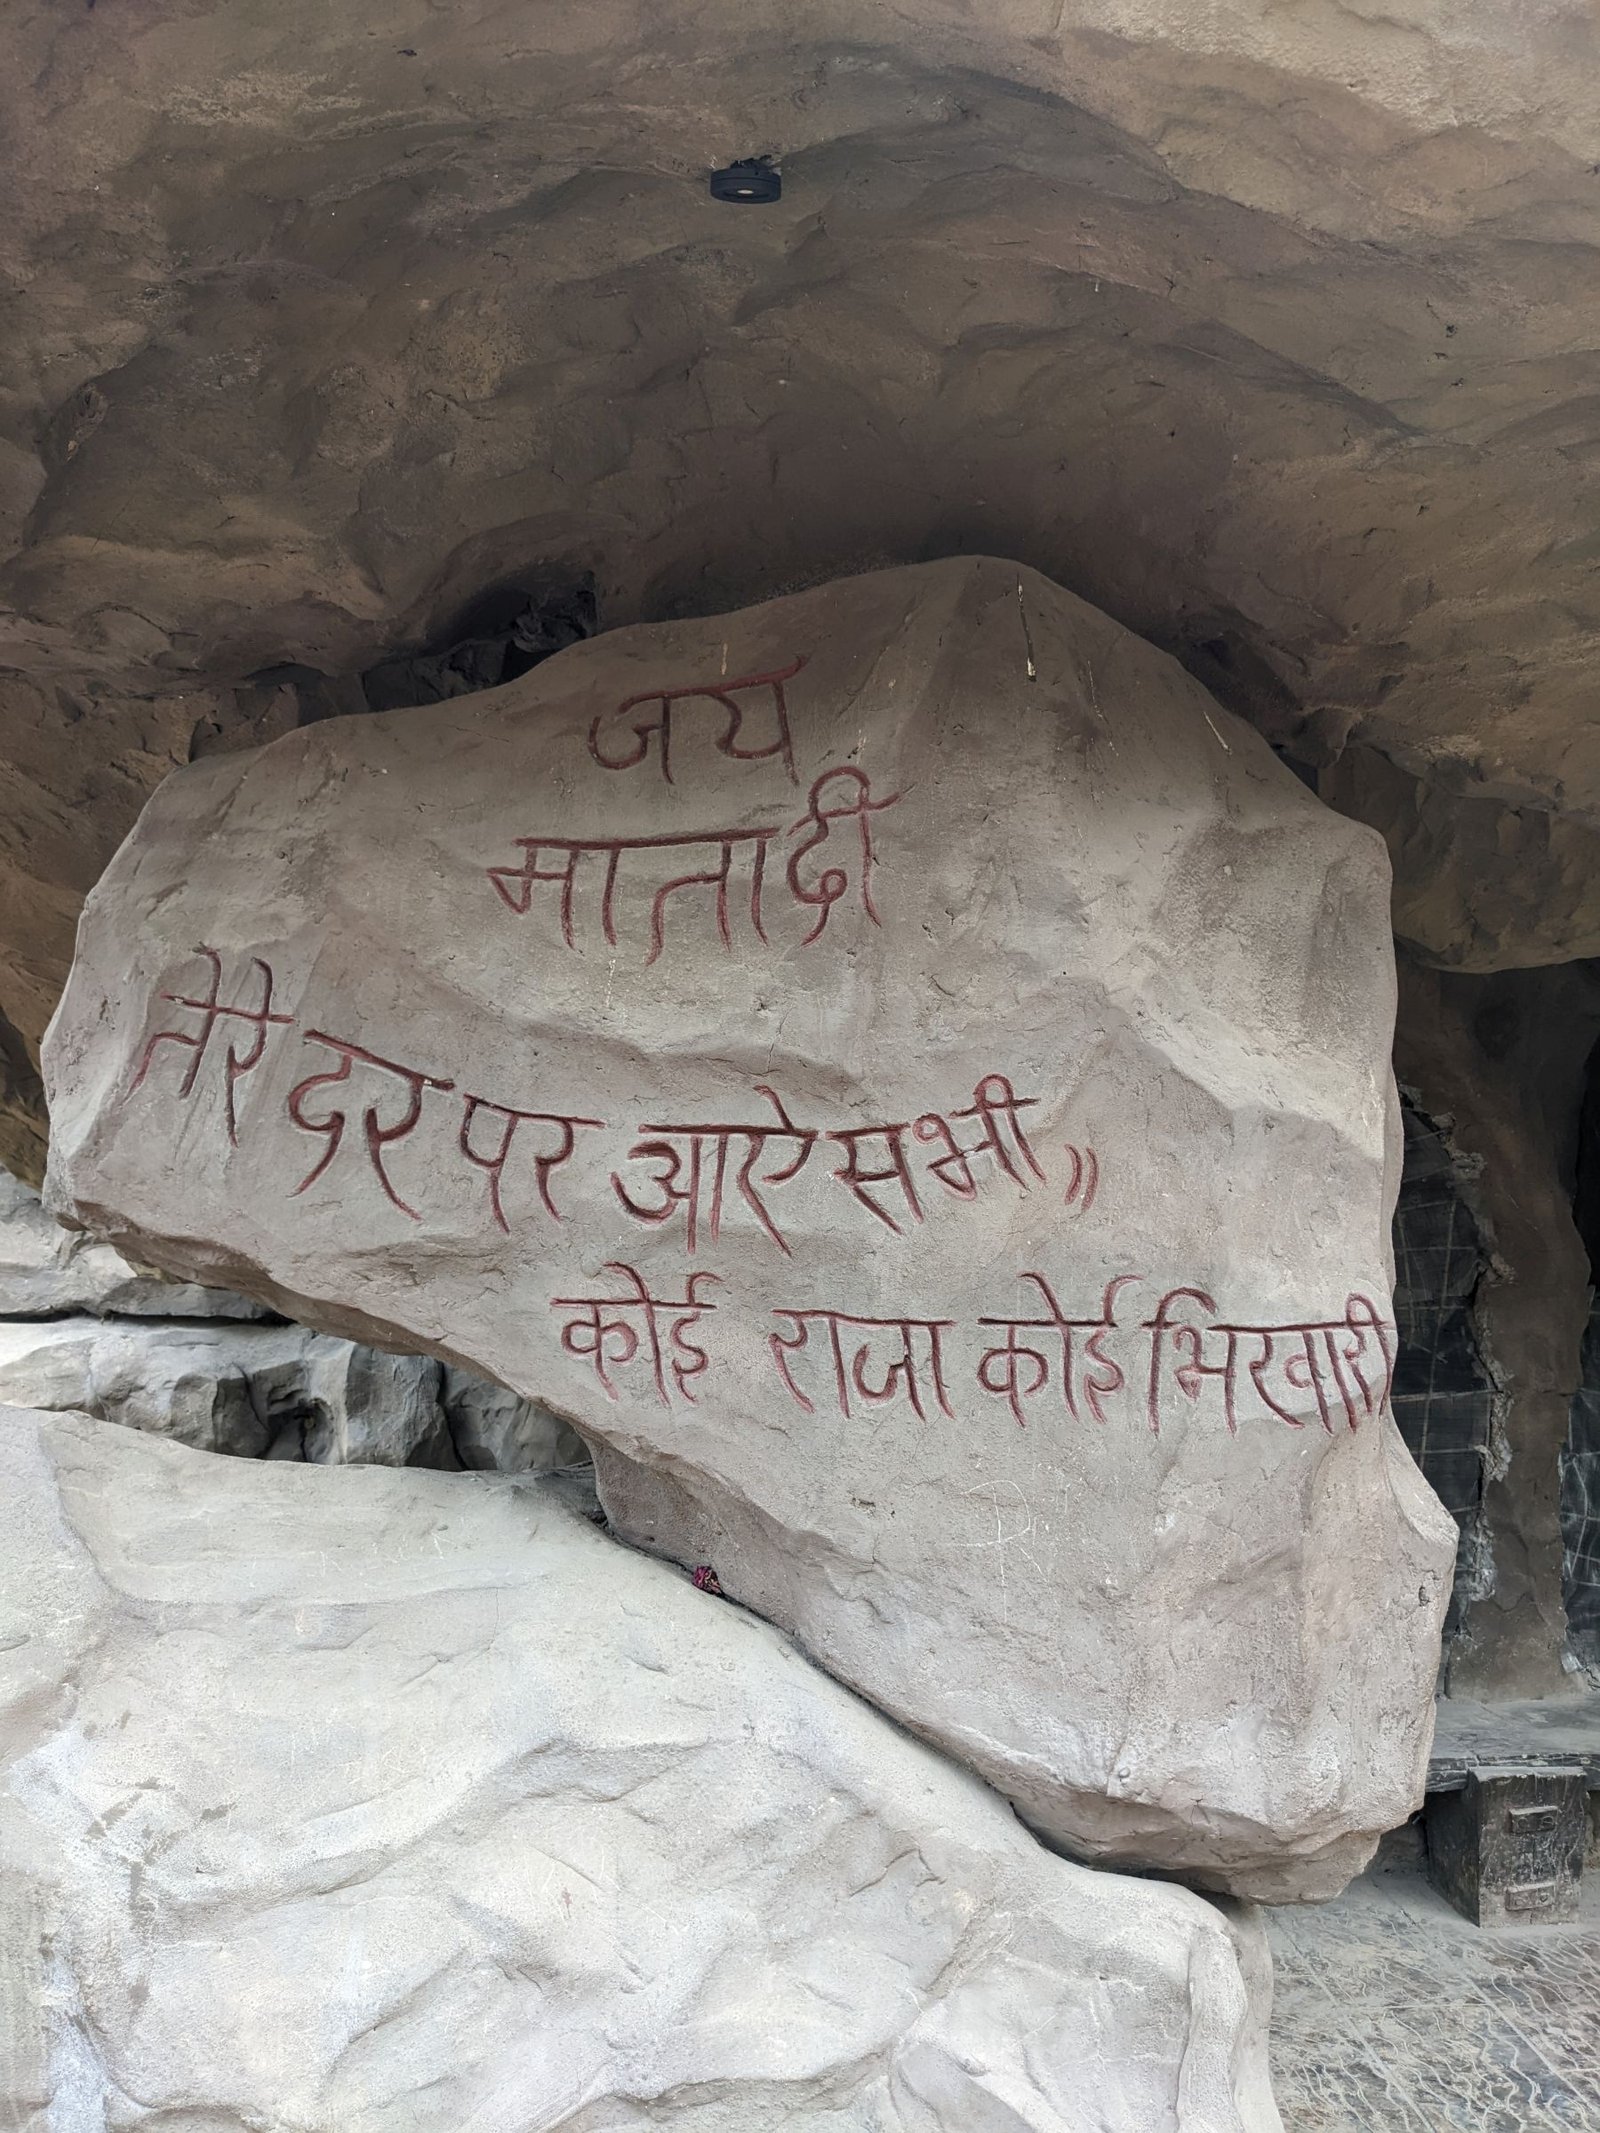 जय
माता दी
तेरे दर पर आऐ सभी,,
कोई राजा कोई भिखारी